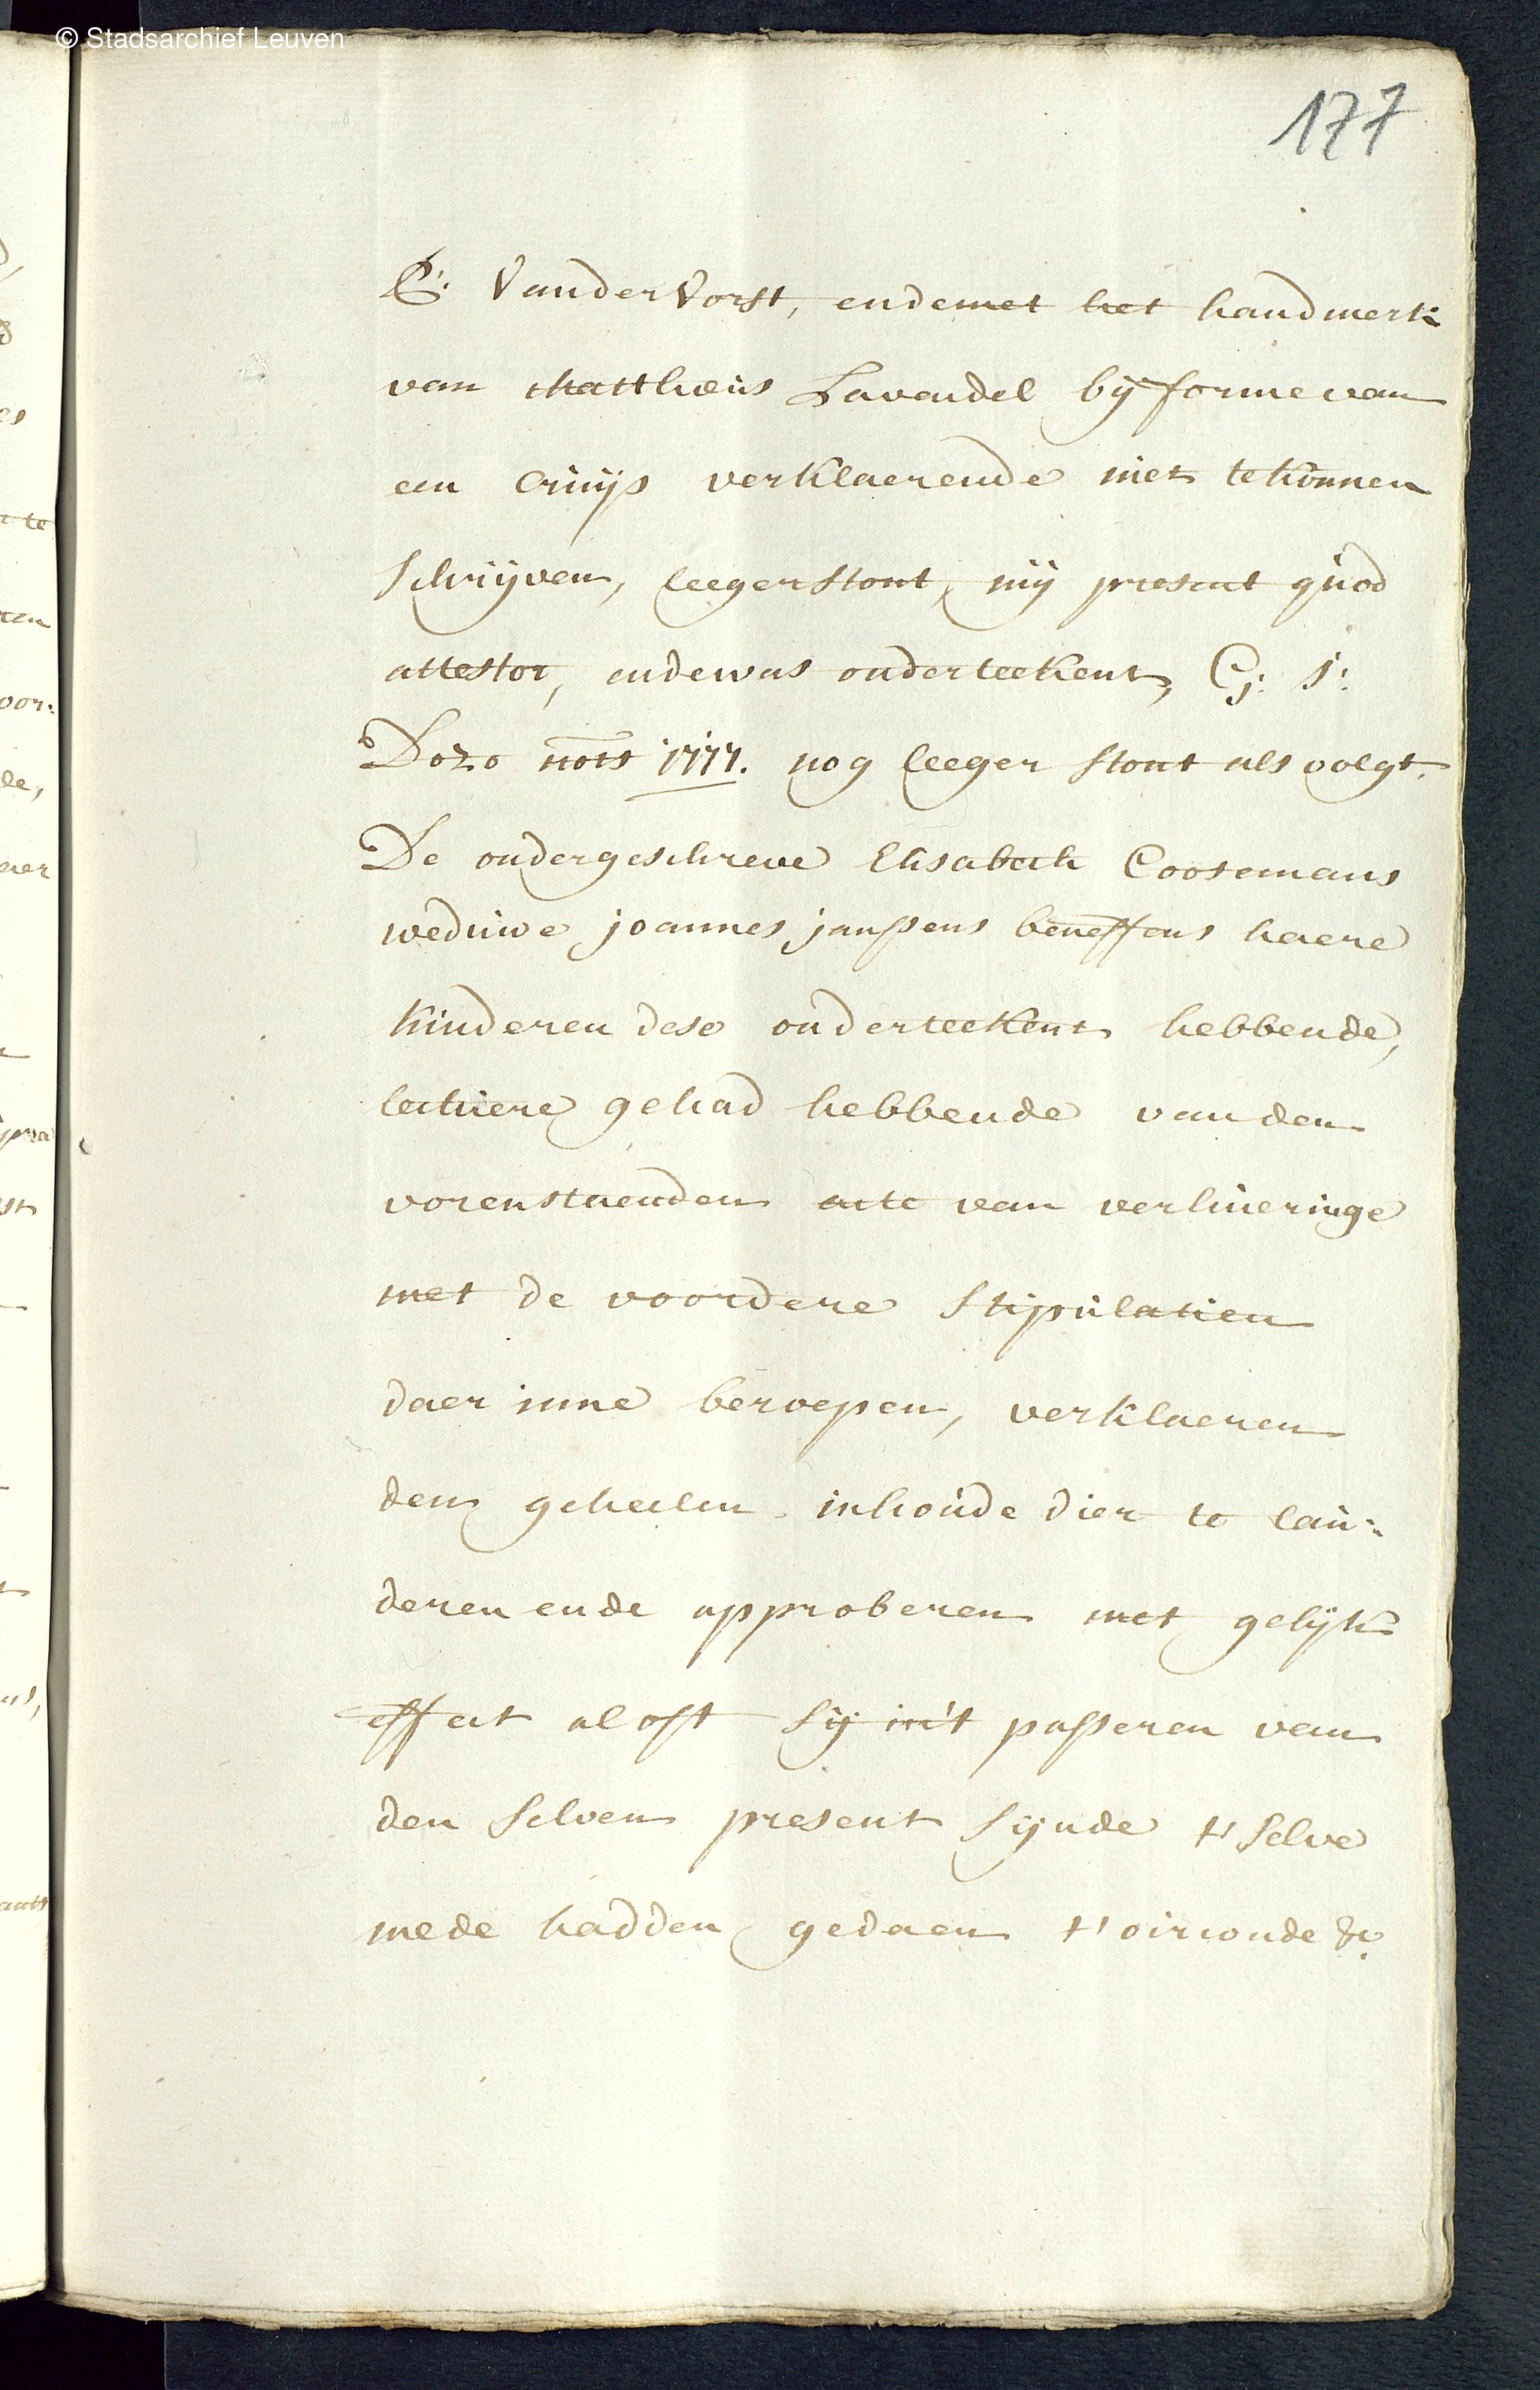 © Stadsarchief Leuven
177
C: VanderVorst, ende met het handmerk
van Mattheus Lavendel bij forme van
een cruijs verklaerende niet te konnen
schrijven, leeger stont, mij present quod
attestor, ende was onderteekent, G: J:
Dozo nots 1777. nog leeger stont als volgt.
De ondergeschreve Elisabeth Coosemans
weduwe joannes janssens beneffens haere
kinderen dese onderteekent hebbende,
lecture gehad hebbende van den
vorenstaenden acte van verhueringe
met de voordere stipulatien
daer inne beroepen, verklaeren
den geheelen inhoude dier te lau:
deren ende approberen met gelijk
effect al oft sij in't passeren van
den selven present sijnde t'selve
mede hadden gedaen t'oirconde &c